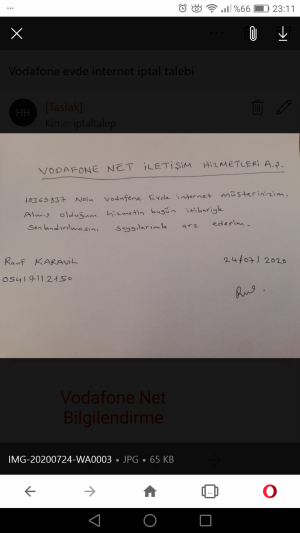 %66 23:11
Vodafone evde internet iptal talebi
HH
[Taslak]
Kime: iptaltalep
VODAFONE NET İLETİŞİM HİZMETLERİ A.Ş.
Nolu Vodafone Evde internet müşterinizim.
Almış olduğum hizmetin bugün itibariyle
Sonlandırılmasını saygılarımla arz ederim.
Rauf 24/07/2020
Vodafone Net
Bilgilendirme
IMG-20200724-WA0003 • JPG • 65 KB